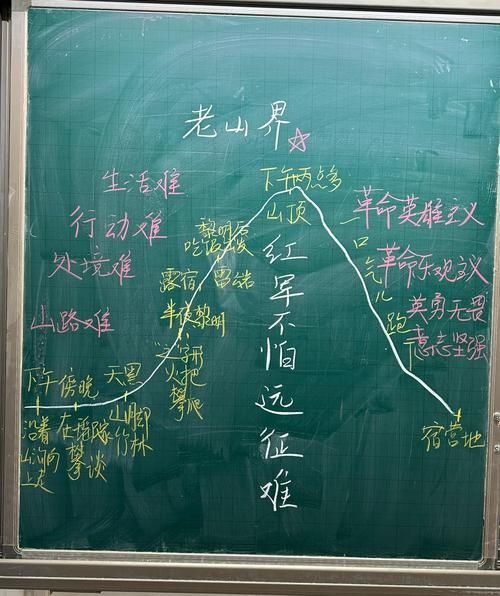 老山界
生活难
行动难
处境难
山路难
下午
沿着山沟向上走
傍晚
在瑶家攀谈
天黑
山脚竹林
之字形火把攀爬
半夜黎明
露宿
雷公岩
黎明后
吃饭出发
下午两点多
山顶
红军不怕远征难
一口气儿跑下
宿营地
革命英雄主义
革命乐观主义
英勇无畏
意志坚强